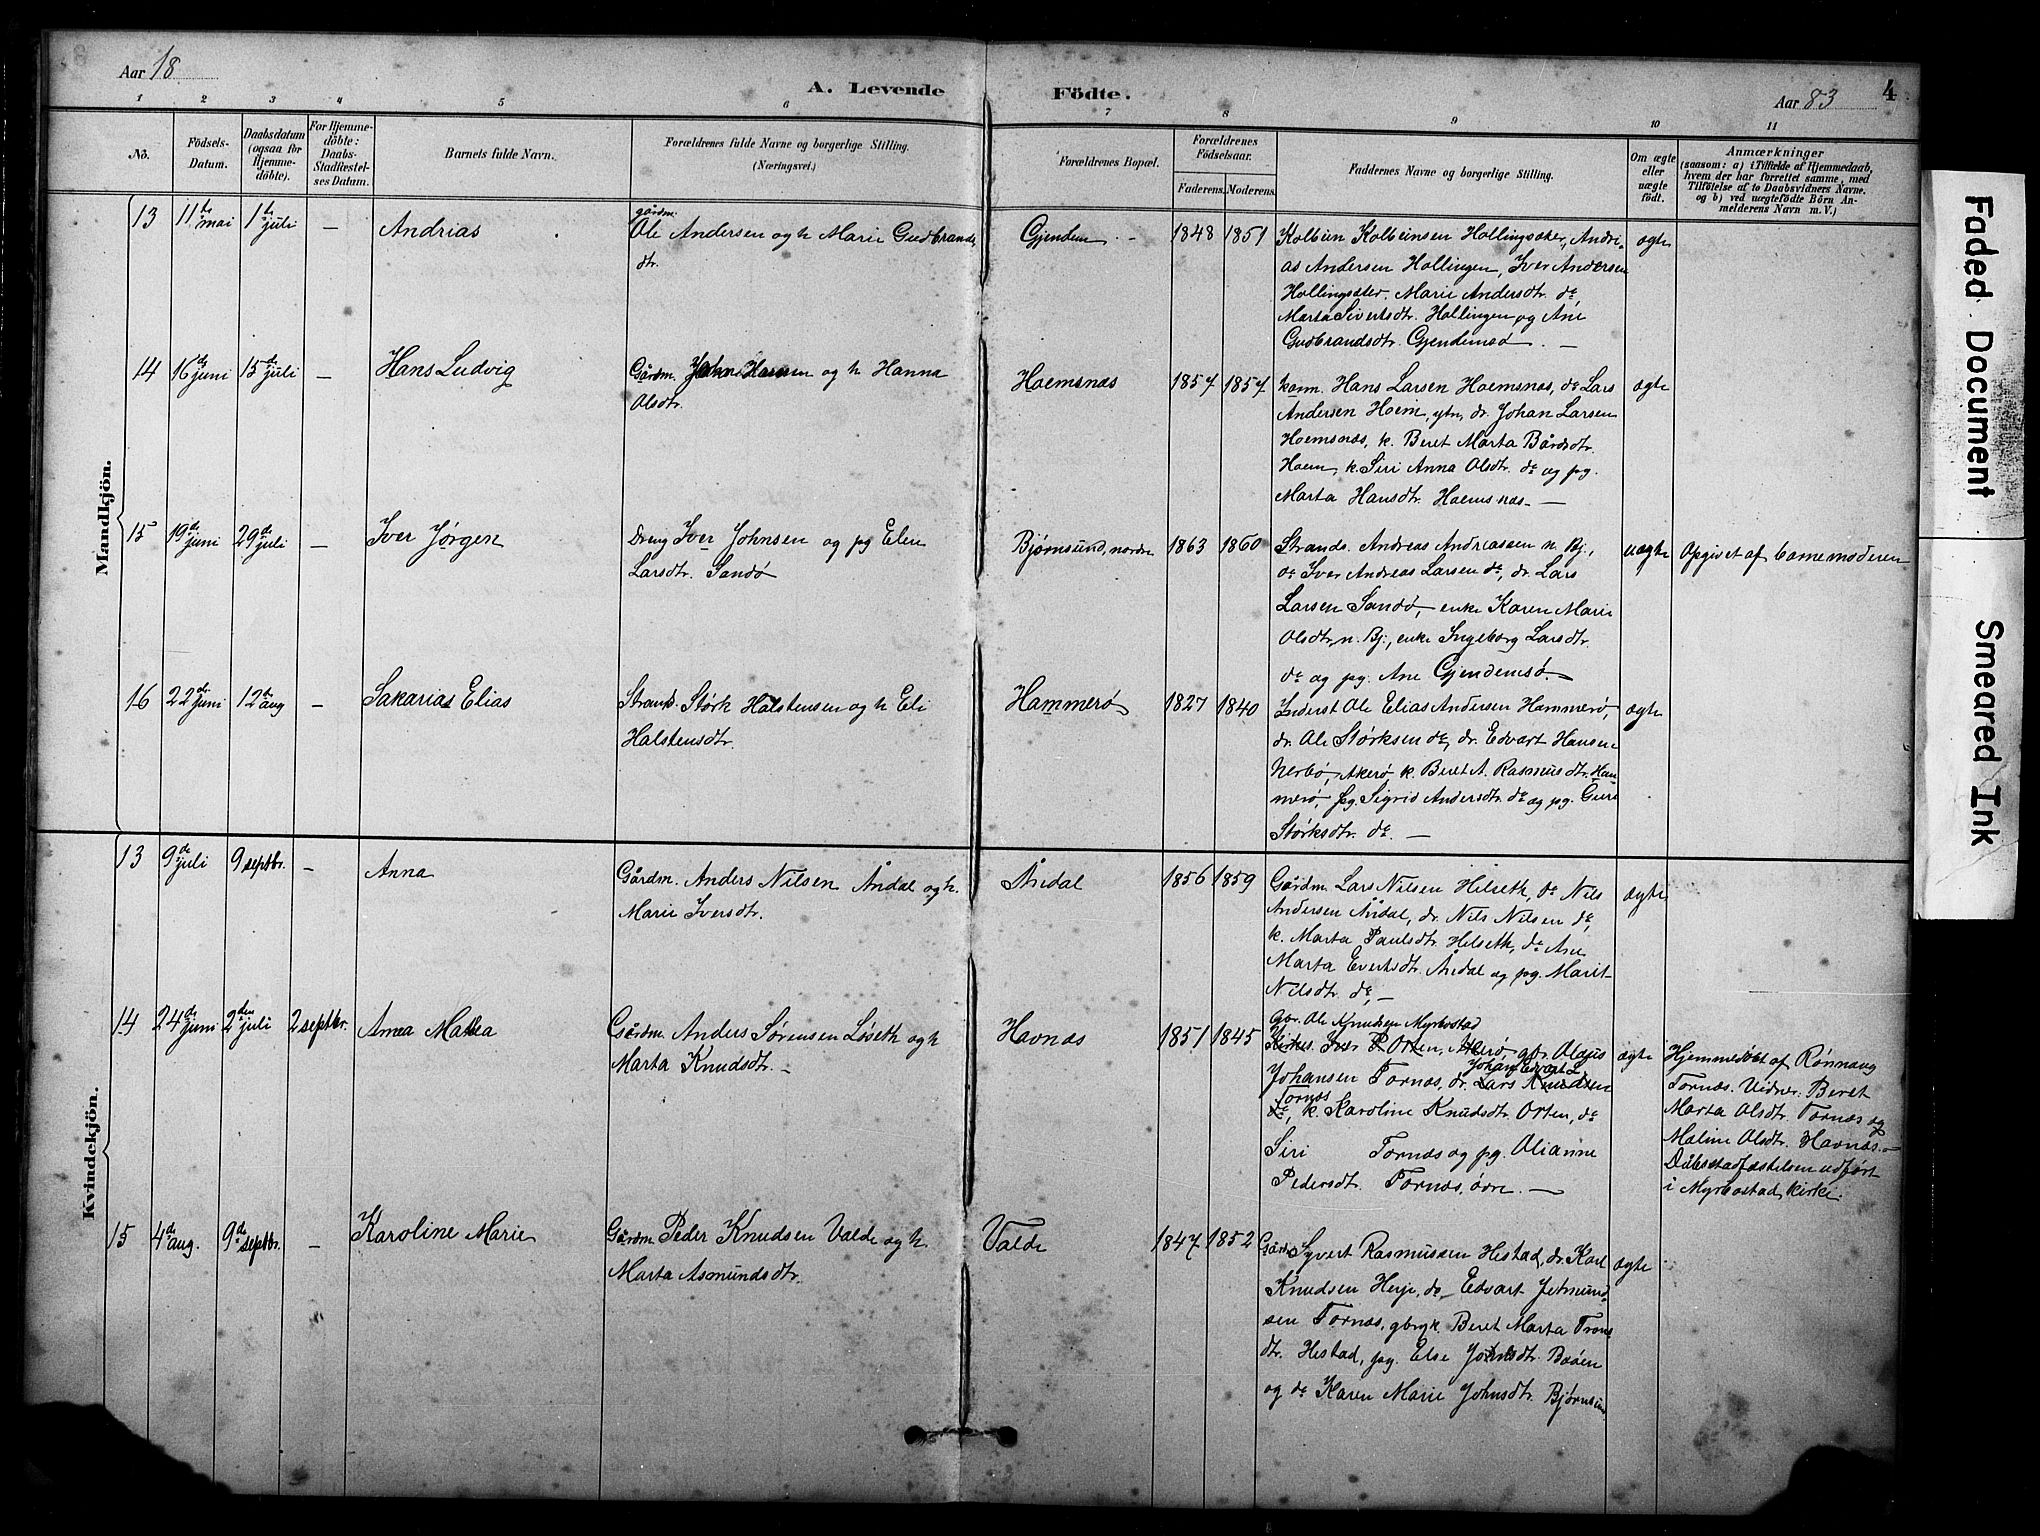 Aar 18
A. Levende
Födte.
Aar 83
4
1 2 3 4 5 6 7 8 9 10 11
No.
Födsels-Datum.
Daabsdatum (ogsaa för Hjemme-döbte).
For Hjemme-döbte: Daabs-Stadfæstel-ses Datum.
Barnets fulde Navn.
Forældrenes fulde Navne og borgerlige Stilling. (Næringsvei.)
Forældrenes Bopæl.
Forældrenes Födselsaar.
Faderens. Moderens.
Faddernes Navne og borgerlige Stilling.
Om ægte eller uægte født.
Anmærkninger
(saasom: a) i Tilfælde af Hjemmedaab,
hvem der har forrettet samme, med
Tilföielse af to Daabsvidners Navne,
og b) ved uægtefödte Börn An-
melderens Navn m. V.)
Mandkjön.
13 11te mai 1te juli — Andrias
gårdm.
Ole Andersen og h Marie Gudbrands
dtr.
Gjendem — 1848 1851
Kolbein Kolbeinsen Hollingsæter, Andri-
as Andersen Hollingen, Iver Andersen
Hollingsæter, Marie Andersdtr. do,
Marta Sivertsdtr. Hollingen og Ane
Gudbrandsdtr. Gjendemsø. —
ægte
14 16de juni 15de juli — Hans Ludvig
Gårdm. John Hansen og h Hanna
Olsdtr.
Hoemsnæs 1857 1857
kaarm. Hans Larsen Hoemsnæs, do Lars
Andersen Hoem, ytn, dr. Johan Larsen
Hoemsnæs, k. Beret Marta Bårdsdtr.
Hoem, k. Siri Anna Olsdtr. do og pg.
Marta Hansdtr. Hoemsnæs —
ægte
15 19de juni 29de juli — Iver Jørgen
Dreng Iver Johnsen og pg Elen
Larsdtr. Sandø
Bjørnsund, nordre 1863 1860
Strands. Andreas Andreassen n. Bj.,
do Iver Andreas Larsen do, dr. Lars
Larsen Sandø, enke Karen Marie
Olsdtr n. Bj., enke Ingeborg Larsdtr
do og pg. Ane Gjendemsø. —
uægte
Opgivet af barnemoderen
16 22de juni 12te aug — Sakarias Elias
Strands. Størk Halstensen og h Eli
Halstensdtr.
Hammerø 1827 1840
Inderst Ole Elias Andersen Hammerø,
dr. Ole Størksen do, dr. Edvart Hansen
Nerbø, Akerø, k. Beret A. Rasmusdtr. Ham-
merø, pg. Sigrid Andersdtr. do og pg. Guri
Størksdtr. do. —
ægte
Kvindekjön.
13 9de juli 9 septbr. — Anna
Gårdm. Anders Nilsen Årdal og h.
Marie Iversdtr.
Årdal 1856 1859
Gårdm. Lars Nilsen Hilseth, do Nils
Andersen Årdal, dr. Nils Nilsen do,
k. Marta Paulsdtr. Hilseth, do Ane
Marta Evertsdtr. Årdal og pg. Marit
Nilsdtr. do, —
ægte
14 24de juni 2den juli 2 septbr. Anna
Gårdm. Anders Sørensen Løseth og h
Marta Knudsdtr. —
Havnæs 1851 1845
gbr. Ole Knudsen Myrbostad
Orten, gbr. Olaus
Johansen Tornæs, dr. Johan Edvart L.
Tornæs
k. Karoline Knudsdtr. Orten, do
Siri Tornæs og pg. Olianne
Pedersdt. Tornæs, øvre. —
ægte
Hjemmedøbt af Rønnaug
Tornæs. Vidner: Beret
Marta Olsdtr. Tornæs og
Maline Olsdtr. Havnæs. —
Dåbsstadfæstelsen udført
i Myrbostad kirke.
15 4de aug. 9de septbr. — Karoline Marie
Gårdm. Peder Knudsen Valde og h.
Marta Asmundsdtr.
Valde 1847 1852
Gårdm Syvert Rasmussen Hestad, dr. Karl
Knudsen Heje, do Edvart Jetmund-
sen Tornæs, gbrgk. Beret Marta Trons
dtr. Hestad, pg. Else dtr. Boøen
og do Karen Marie Johnsdtr Bjørnsund
ægte
Faded Document
Smeared Ink